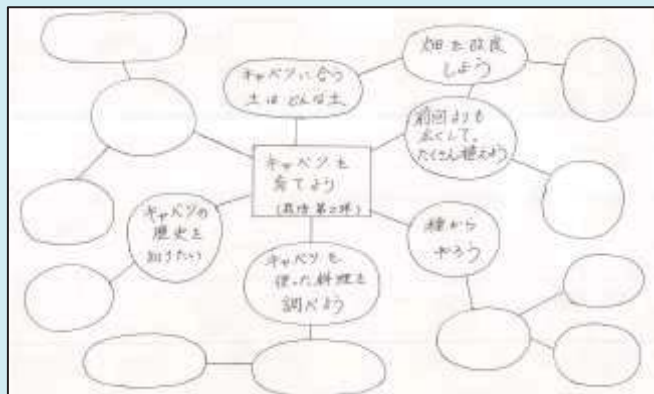 キャベツに合う
土はどんな土
畑を改良
しよう
前回よりも
広くして、
たくさん植えよう
キャベツを
育てよう
キャベツの
歴史を
知りたい
種から
やろう
キャベツを
使った料理を
調べよう